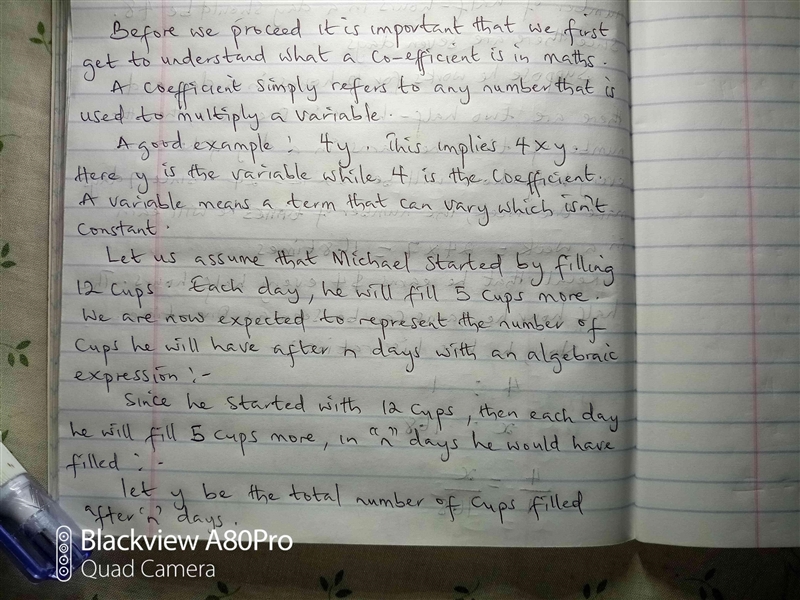 Before we proceed it is important that we first
get to understand what a Co-efficient is in maths.
A Coefficient simply refers to any number that is
used to multiply a variable.
A good example : 4y. This implies 4 x y.
Here y is the variable while 4 is the Coefficient.
A variable means a term that can vary which isn't
Constant.
Let us assume that Michael started by filling
12 Cups. Each day, he will fill 5 Cups more.
We are now expected to represent the number of
Cups he will have after n days with an algebraic
expression :-
Since he started with 12 Cups, then each day
he will fill 5 Cups more, in "n" days he would have
filled : -
let y be the total number of Cups filled
after 'n' days.
Blackview A80Pro
Quad Camera